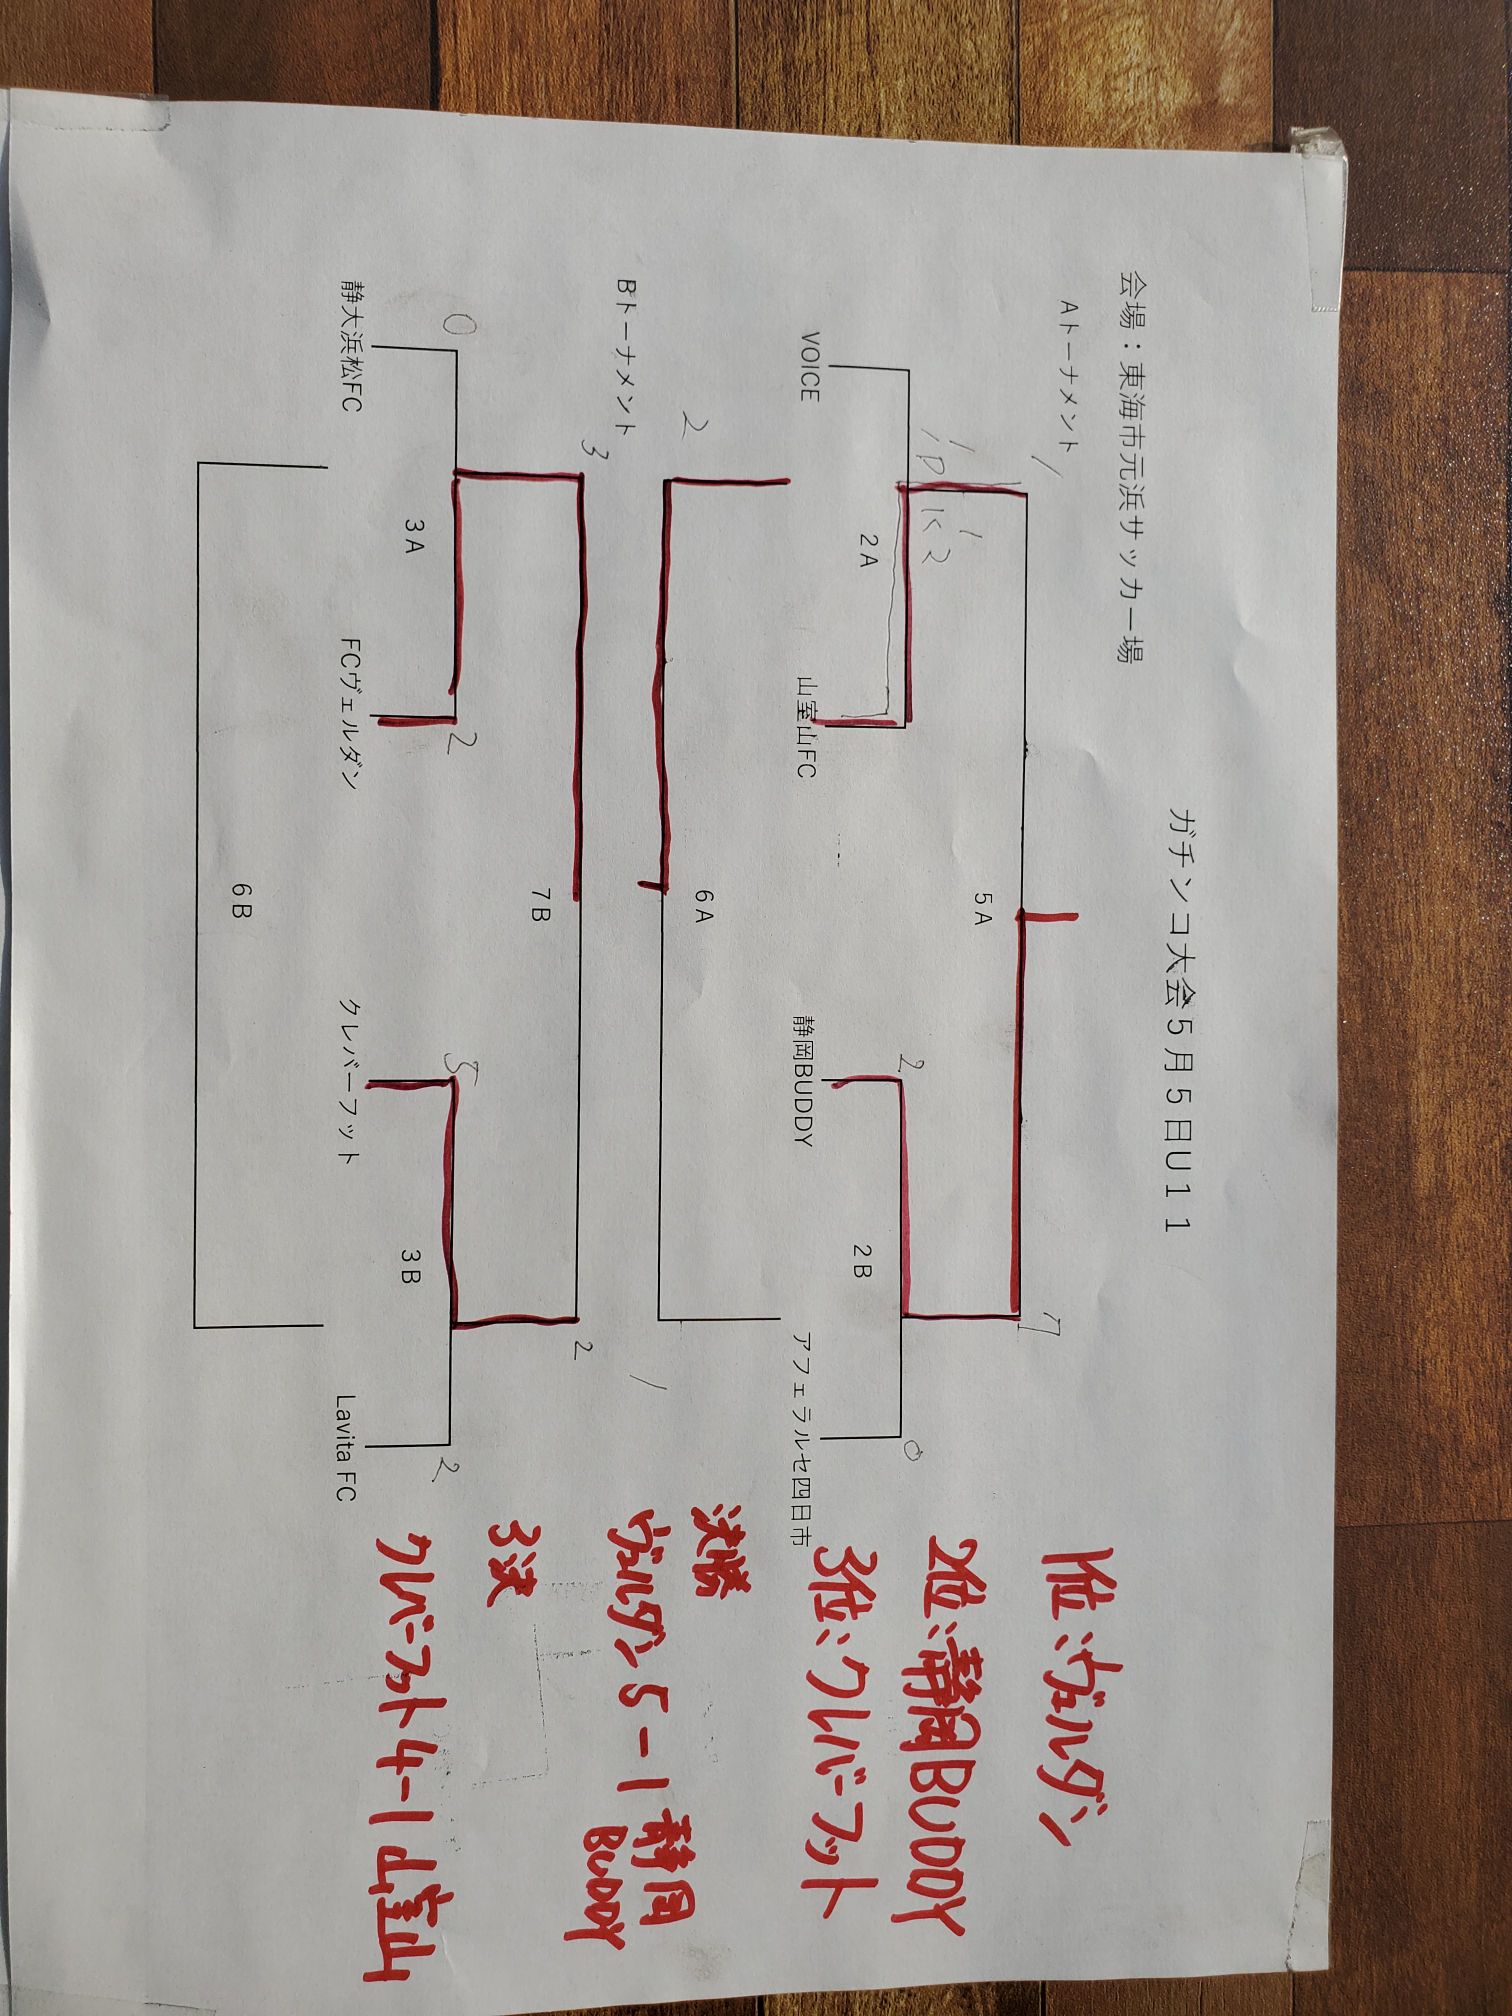 ガチンコ大会５月５日U１１
会場：東海市元浜サッカー場
Aトーナメント
1
7
5A
1
PK
1
2
2
0
2A
2B
VOICE
山室山FC
静岡BUDDY
アフェラルセ四日市
6A
2
1
Bトーナメント
3
2
7B
0
2
5
2
3A
3B
静大浜松FC
FCヴェルダン
クレバーフット
Lavita FC
6B
1位:ヴェルダン
2位:静岡BUDDY
3位:クレバーフット
決勝
ヴェルダン 5-1 静岡
BUDDY
3決
クレバーフット 4-1 山室山